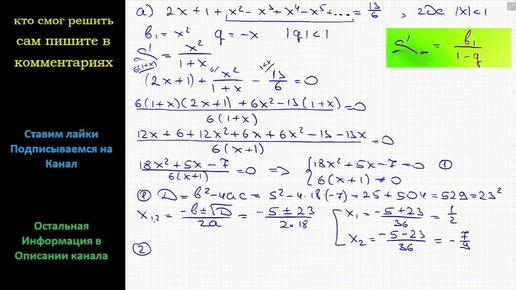 кто смог решить
сам пишите в
комментариях
Ставим лайки
Подписываемся на
Канал
Остальная
Информация в
Описании канала
а) 2x + 1 + x² - x³ + x⁴ - x⁵ + .... = 13/6 , где |x| < 1
b₁ = x² q = -x |q| < 1
S = x²/(1+x)
S = b₁/(1-q)
(2x+1) + x²/(1+x) - 13/6 = 0
(6(1+x)(2x+1) + 6x² - 13(1+x))/(6(1+x)) = 0
(12x + 6 + 12x² + 6x + 6x² - 13 - 13x)/(6(x+1)) = 0
(18x² + 5x - 7)/(6(x+1)) = 0 => { 18x² + 5x - 7 = 0 ①
6(x+1) ≠ 0
① D = b² - 4ac = 5² - 4·18·(-7) = 25 + 504 = 529 = 23²
x₁,₂ = (-b ± √D)/2a = (-5 ± 23)/(2·18)
x₁ = (-5+23)/36 = 1/2
x₂ = (-5-23)/36 = -7/9
②